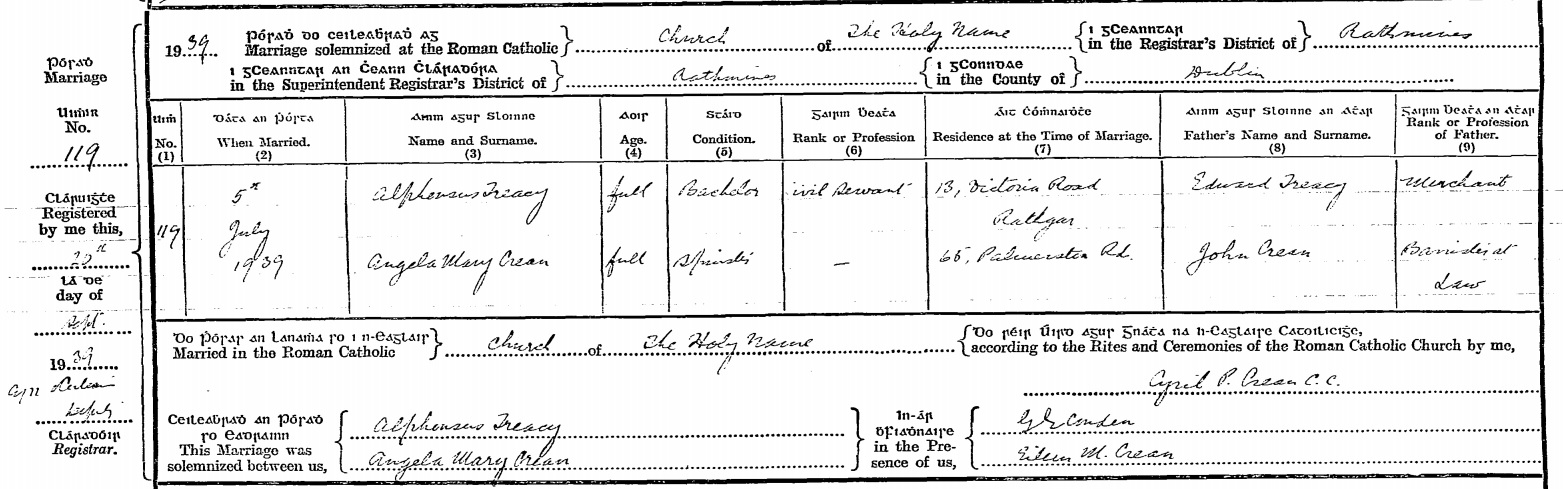 1939 Pórad do ceileabrad ag
Marriage solemnized at the Roman Catholic Church of The Holy Name
i gCeanntar
in the Registrar's District of Rathmines
i gCeanntar an Ċeann Ċláradóra
in the Superintendent Registrar's District of Rathmines
i gConndae
in the County of Dublin
Pórad
Marriage
Uimir
No.
119
Cláruiġṫe
Registered
by me this,
25th
Lá de
day of
Sept.
1939
Deputy
Cláradóir
Registrar.
Uim No. (1)
Dáta an Pórta When Married. (2)
Ainm agur Sloinne Name and Surname. (3)
Aoir Age. (4)
Stáid Condition. (5)
Gairm Beaṫa Rank or Profession (6)
Áit Cómnaiḋṫe Residence at the Time of Marriage. (7)
Ainm agur Sloinne an Aṫar Father's Name and Surname. (8)
Gairm Beaṫa an Aṫar Rank or Profession of Father. (9)
119 5th July 1939
Alphonsus Treacy full Bachelor ivil Servant 13, Victoria Road Rathgar Edward Treacy Merchant
Angela Mary Crean full Spinster — 65, Palmerston Rd. John Crean Barrister at Law
Do Pórar an Lanaṁa ro i n-Eaglair
Married in the Roman Catholic Church of The Holy Name
Do réir Úird agur Gnáṫa na h-Eaglaire Catoilicige,
according to the Rites and Ceremonies of the Roman Catholic Church by me,
Cyril P. Crean C.C.
Ceileaḃraḋ an Pórad
ro Eadrainn
This Marriage was
solemnized between us,
Alphonsus Treacy
Angela Mary Crean
In-ár
ḃfiaḋnaire
in the Pre-
sence of us,
Conden
Eileen M. Crean